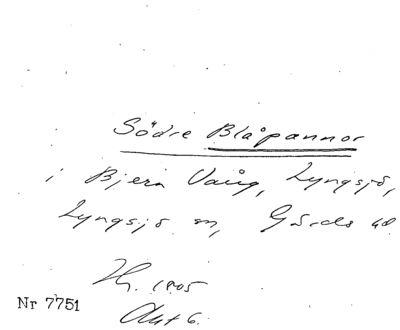 Södre Blåpannor
i Bjera Vång, Lyngsjö,
Lyngsjö sn, Gärds hd.
1905
Nr 7751
Akt 6.